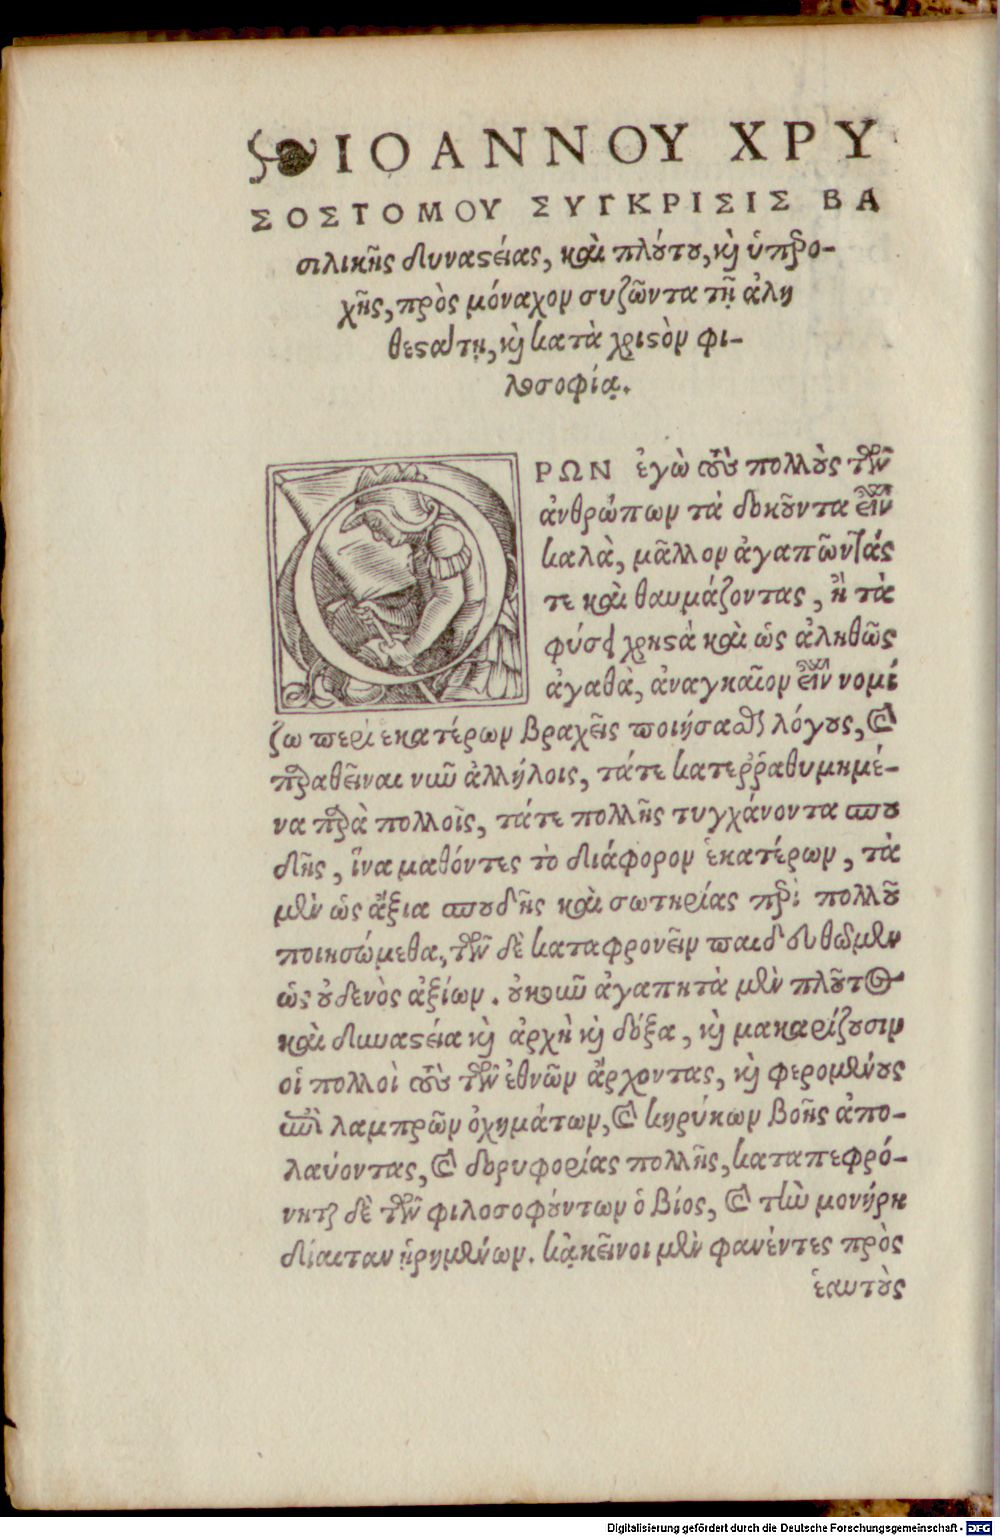 ΙΟΑΝΝΟΥ ΧΡΥ
ΣΟΣΤΟΜΟΥ ΣΥΓΚΡΙΣΙΣ ΒΑ
σιλικῆς δυναστείας, καὶ πλούτου, καὶ ὑπερο-
χῆς, πρὸς μόναχον συζῶντα τῇ ἀλη
θεστάτῃ, καὶ κατὰ χριστὸν φι-
λοσοφίᾳ.
ΟΡΩΝ ἐγὼ τοὺς πολλοὺς τῶν
ἀνθρώπων τὰ δοκοῦντα εἶναι
καλὰ, μᾶλλον ἀγαπῶντάς
τε καὶ θαυμάζοντας, ἢ τὰ
φύσει χρηστὰ καὶ ὡς ἀληθῶς
ἀγαθὰ, ἀναγκαῖον εἶναι νομί
ζω περὶ ἑκατέρων βραχεῖς ποιήσασθαι λόγους, καὶ
παραθεῖναι νῦν ἀλλήλοις, τάτε κατερῤῥαθυμημέ-
να παρὰ πολλοῖς, τάτε πολλῆς τυγχάνοντα σπου
δῆς, ἵνα μαθόντες τὸ διάφορον ἑκατέρων, τὰ
μὲν ὡς ἄξια σπουδῆς καὶ σωτηρίας περὶ πολλοῦ
ποιησώμεθα, τῶν δὲ καταφρονεῖν παιδευθῶμεν
ὡς οὐδενὸς ἀξίων. οὐκοῦν ἀγαπητὰ μὲν πλοῦτος
καὶ δυναστεία καὶ ἀρχὴ καὶ δόξα, καὶ μακαρίζουσιν
οἱ πολλοὶ τοὺς τῶν ἐθνῶν ἄρχοντας, καὶ φερομένους
ἐπὶ λαμπρῶν ὀχημάτων, καὶ κηρύκων βοῆς ἀπο-
λαύοντας, καὶ δορυφορίας πολλῆς, καταπεφρό-
νηται δὲ τῶν φιλοσοφούντων ὁ βίος, καὶ τὴν μονήρη
δίαιταν ᾑρημένων. κᾀκεῖνοι μὲν φανέντες πρὸς
ἑαυτοὺς
Digitalisierung gefördert durch die Deutsche Forschungsgemeinschaft - DFG